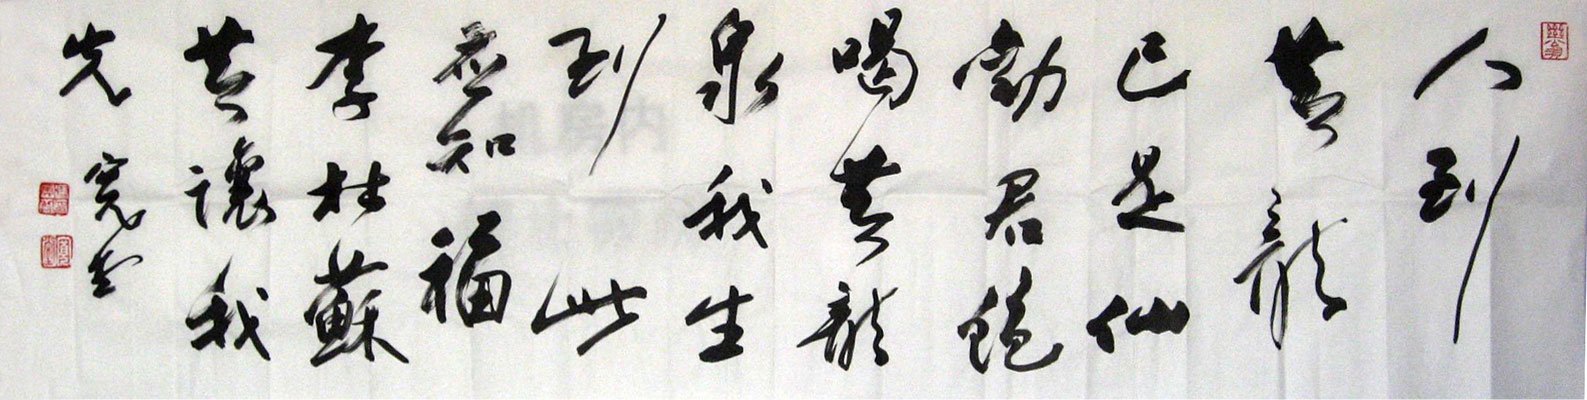 人到
黄龍
已是仙
勸君飽
喝黄龍
泉我生
到此
應知福
李杜蘇
黄讓我
先 寬堂